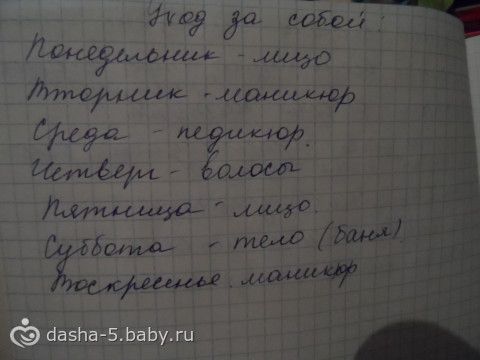 Уход за собой:
Понедельник - лицо
Вторник - маникюр
Среда - педикюр.
Четверг - волосы
Пятница - лицо.
Суббота - тело (баня)
Воскресенье. маникюр
dasha-5.baby.ru